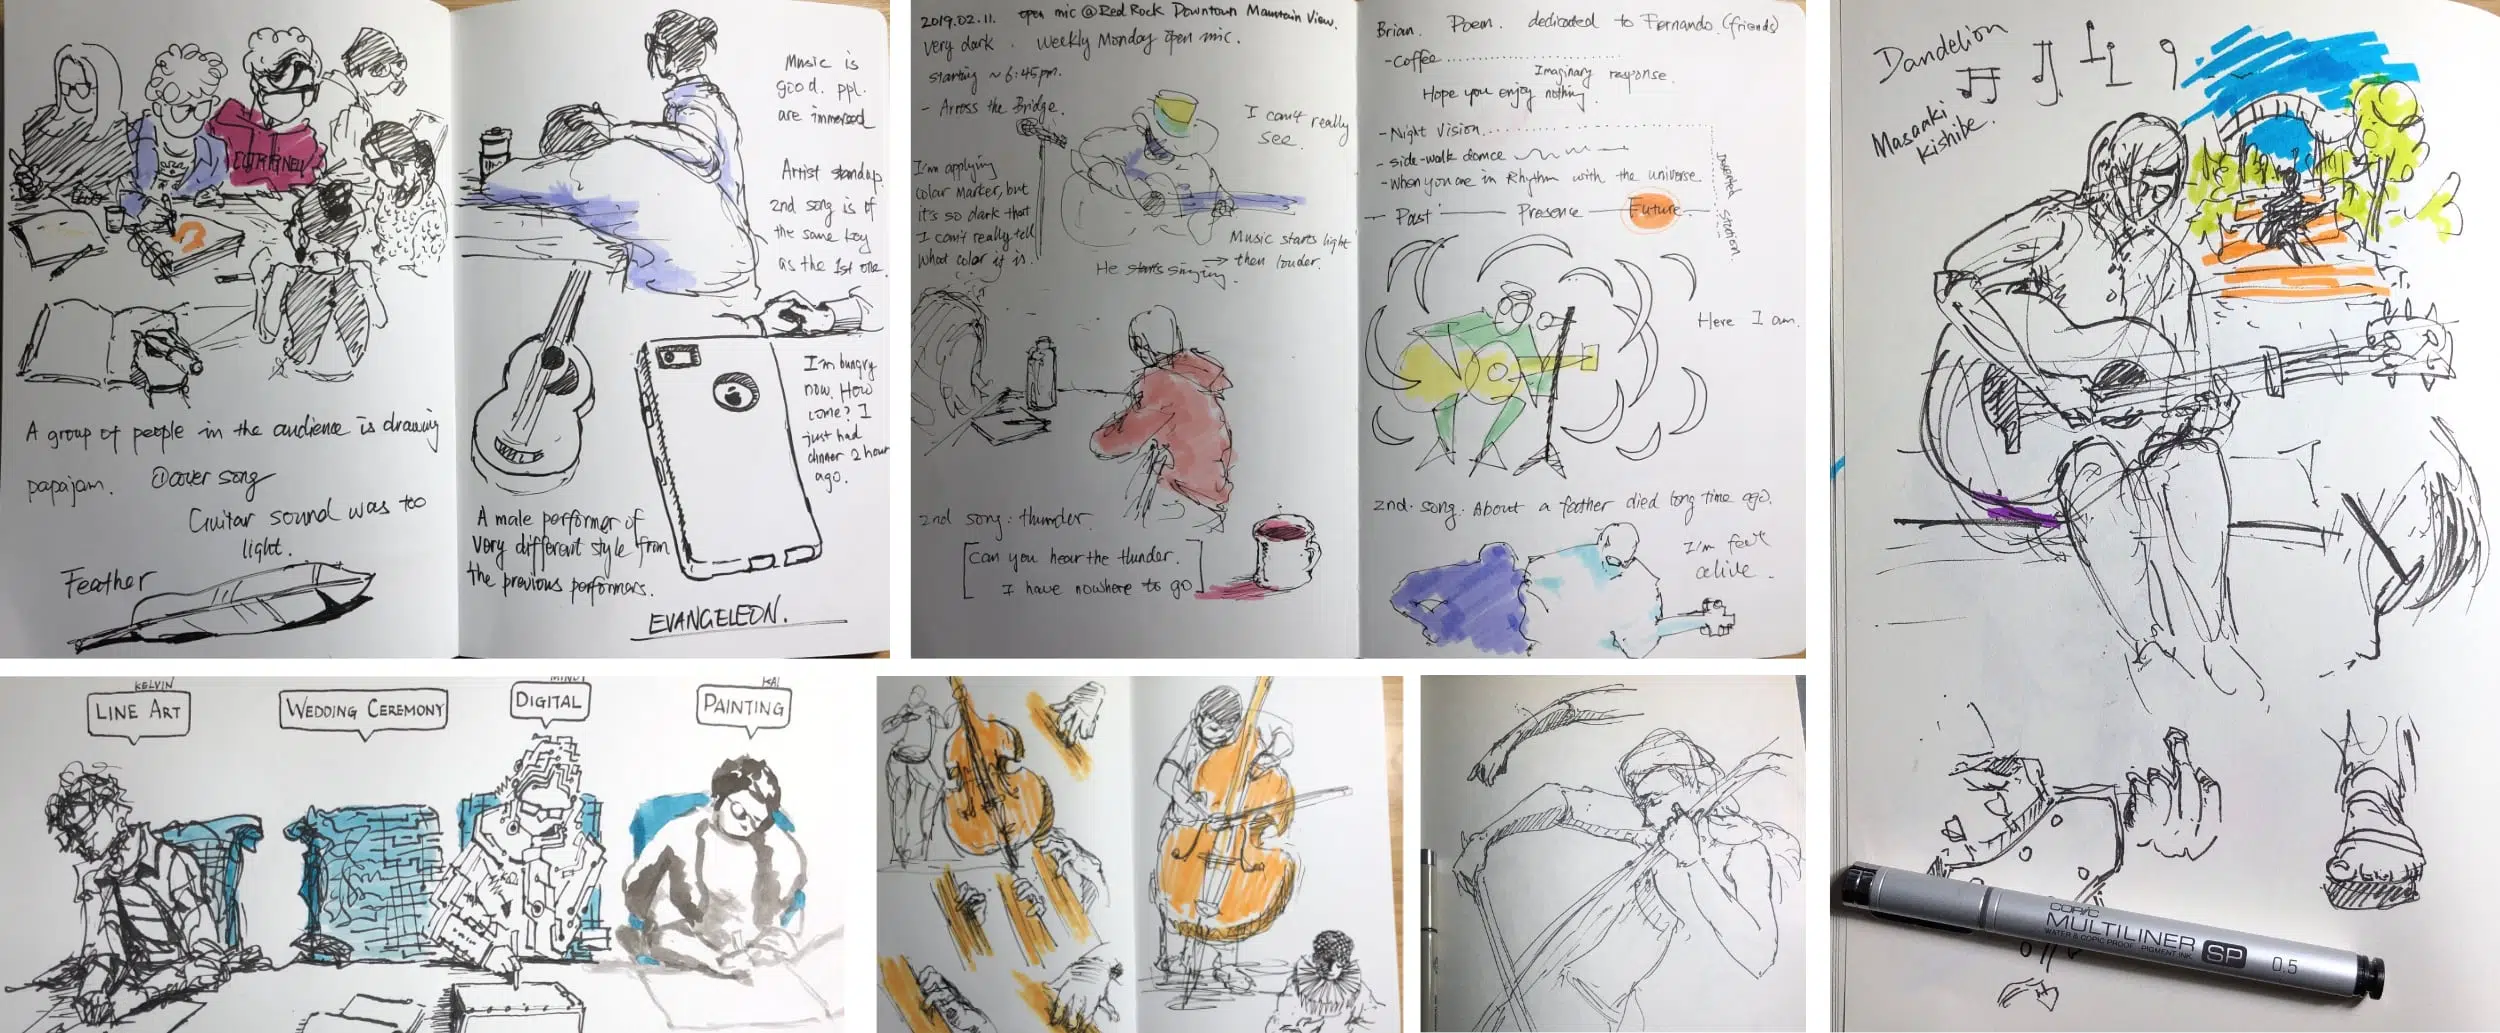 Music is
good. ppl.
are immersed
Artist standup.
2nd song is of
the same key
as the 1st one.
A group of people in the audience is drawing
papajam. ① cover song
Guitar sound was too
light.
Feather
I'm hungry
now. How
come? I
just had
dinner 2 hour
ago.
A male performer of
very different style from
the previous performers.
EVANGELEON.
2019.02.11. open mic @ Red Rock Downtown Mountain View.
very dark. Weekly Monday open mic.
starting ~ 6:45pm.
- Across the Bridge.
I can't really
see.
I'm applying
color marker, but
it's so dark that
I can't really tell
what color it is.
He starts singing
Music starts light
→ then louder.
2nd song: thunder.
[can you hear the thunder.
I have nowhere to go]
Brian. Poem. dedicated to Fernando. (friends)
- Coffee
Imaginary response.
Hope you enjoy nothing.
- Night Vision
- side-walk dance
- When you are in Rhythm with the universe
Past Presence Future
Station
Here I am.
2nd. song. About a father died long time ago.
I'm feel
alive.
Dandelion
Masaaki
Kishibe.
KELVIN
LINE ART
WEDDING CEREMONY
DIGITAL
KAI
PAINTING
COPIC
MULTILINER SP 0.5
WATER & COPIC PROOF · PIGMENT INK